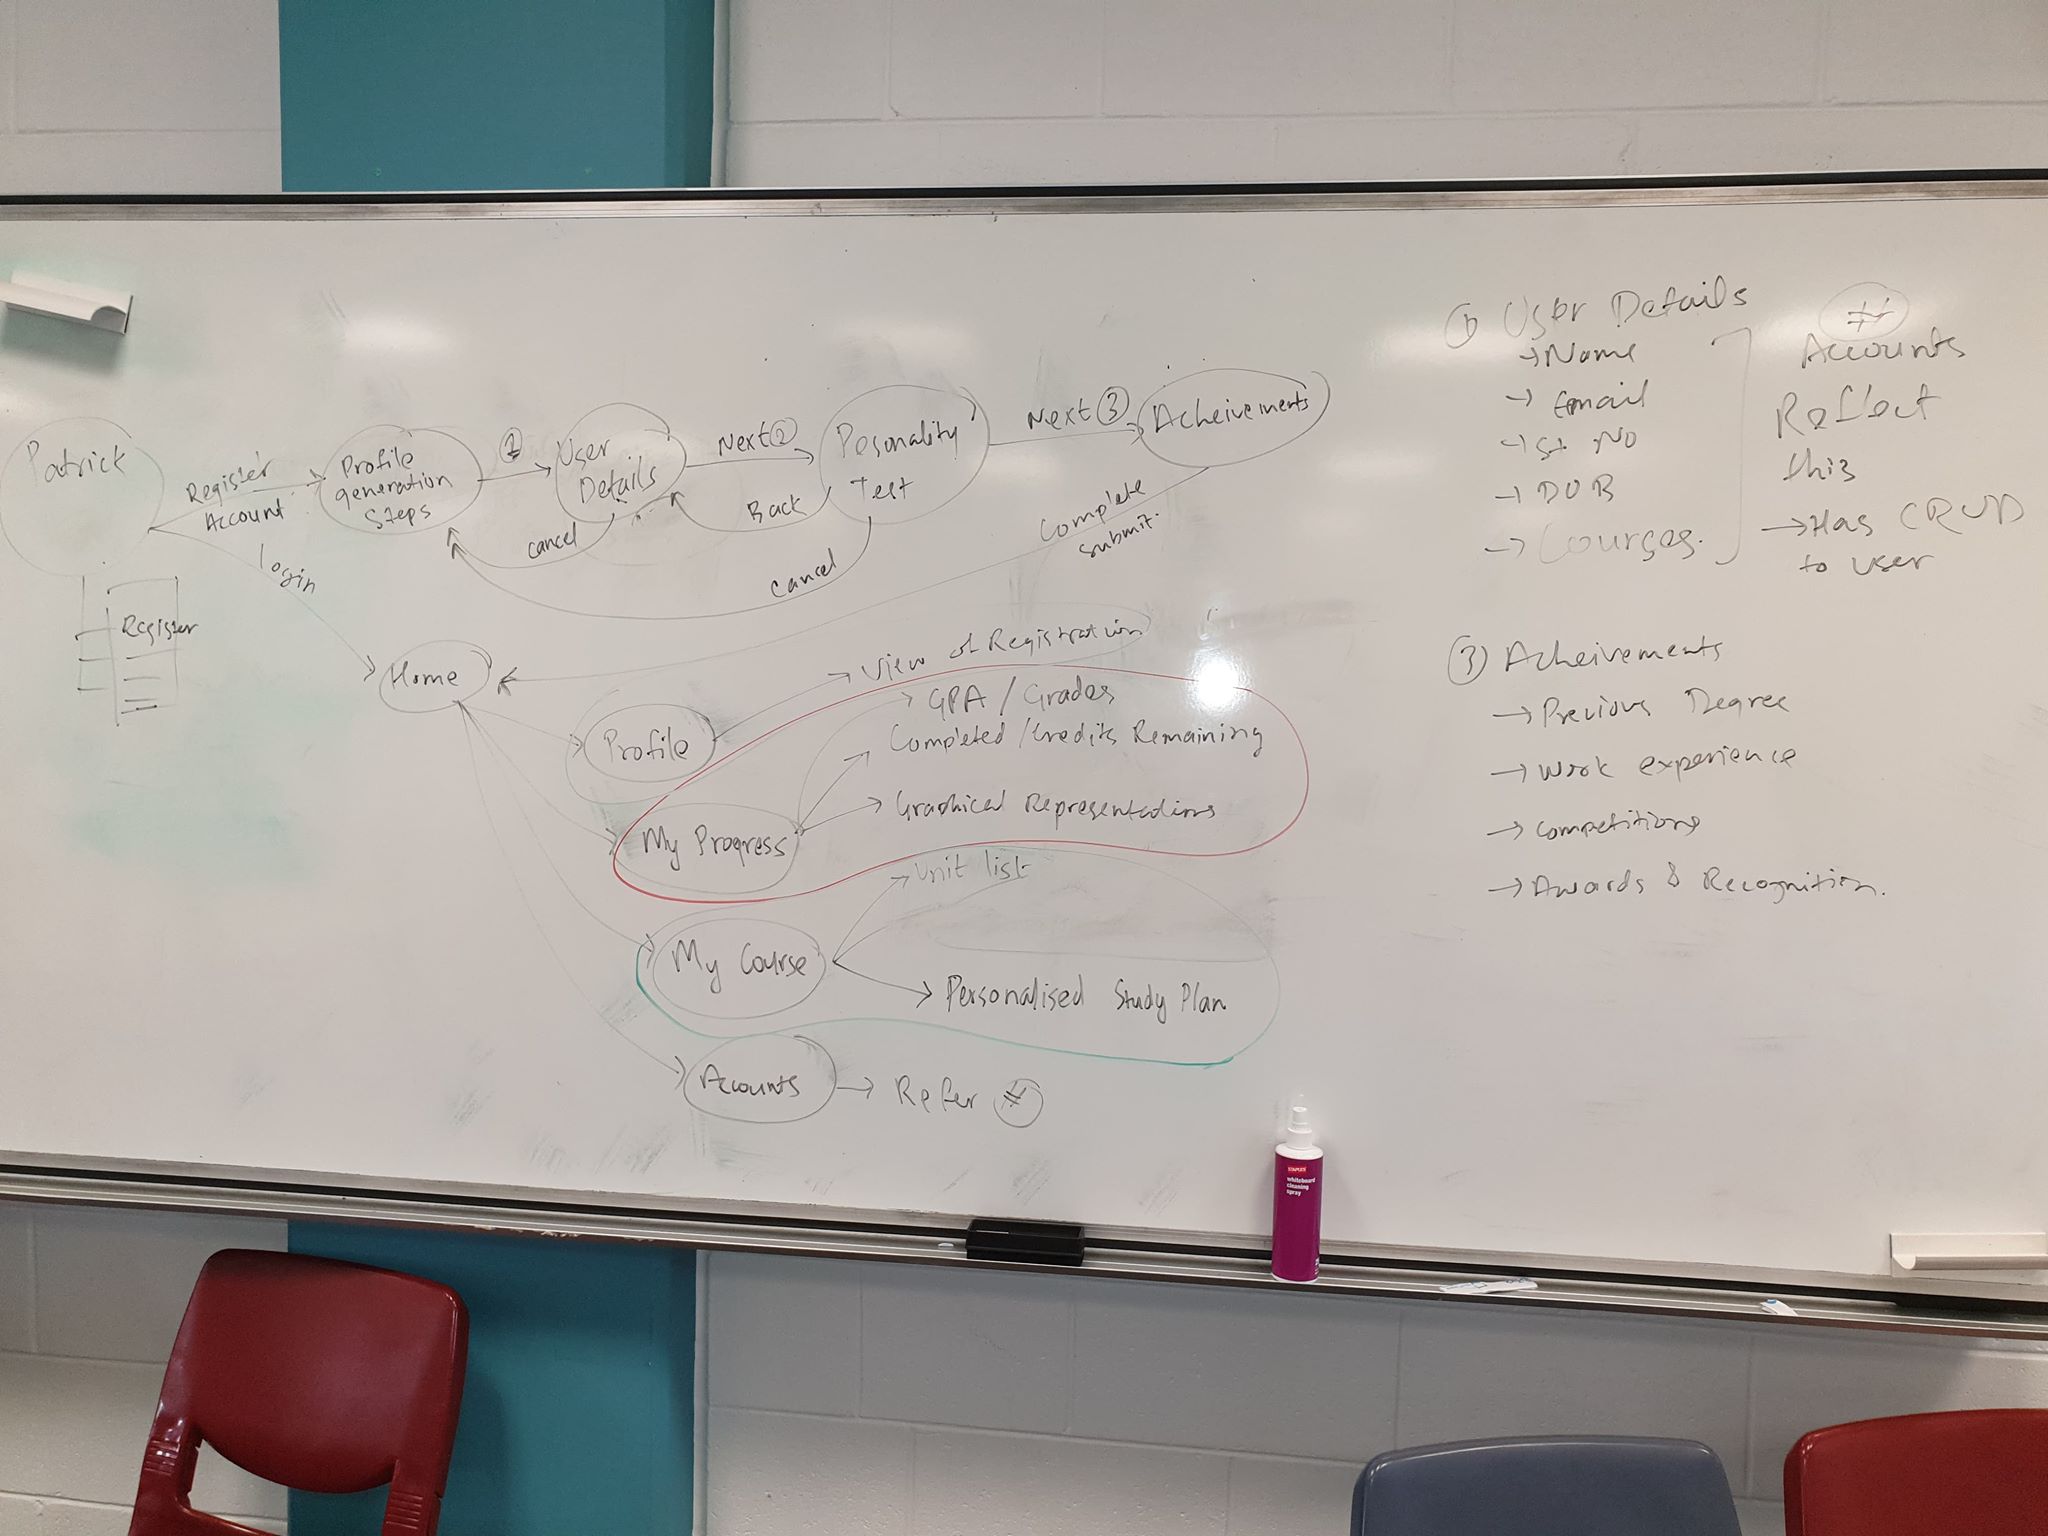 Patrick
Register
Account
Login
Register
Profile
generation
Steps
1
User
Details
Next 2
Pesonality
Test
Next 3
Acheivements
cancel
Back
cancel
Complete
submit.
Home
Profile
View of Registration
My Progress
GPA / Grades
Completed / Credits Remaining
Graphical Representations
My Course
Unit list
Personalised Study Plan
Accounts
Refer #
1 User Details
→ Name
→ Email
→ St No
→ DOB
→ Courses.
#
Accounts
Reflect
this
→ Has CRUD
to user
3 Acheivements
→ Previous Degree
→ Work experience
→ Competitions
→ Awards & Recognition.
STAPLES
whiteboard
cleaning
spray